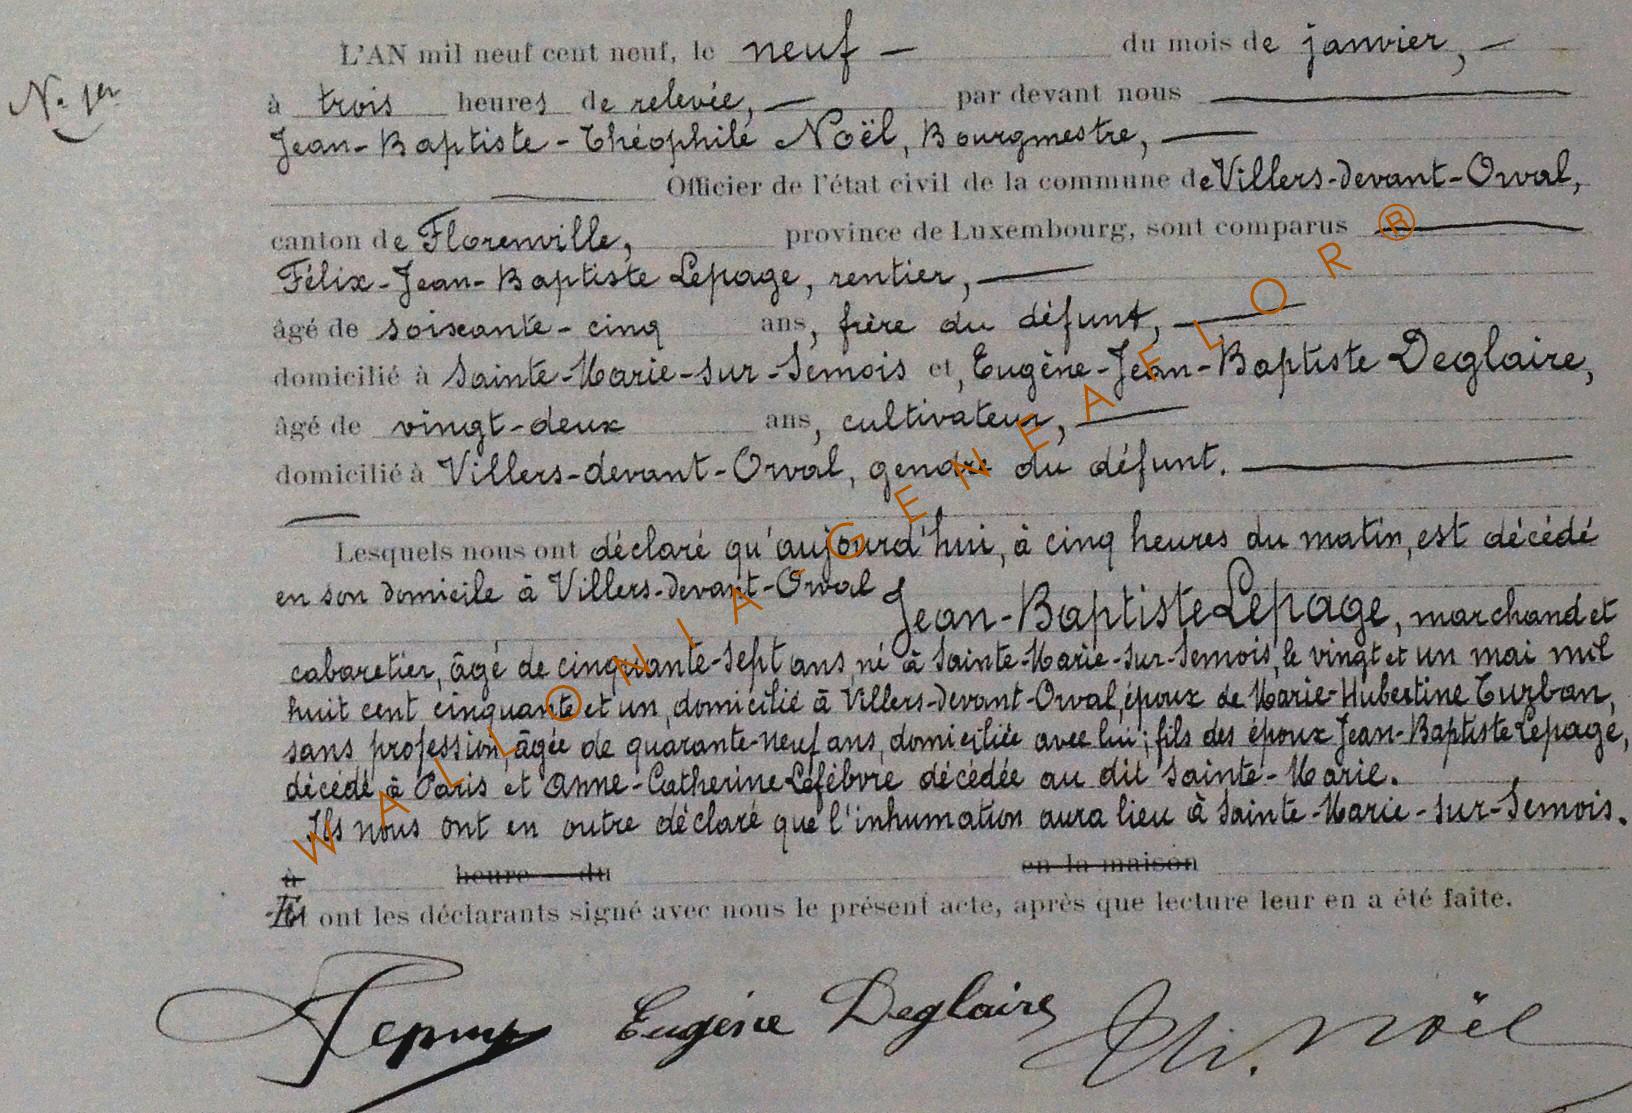 N.° 1er
L'AN mil neuf cent neuf, le neuf — du mois de janvier, —
à trois heures de relevée, — par devant nous —
Jean-Baptiste-Théophile Noël, Bourgmestre, —
— Officier de l'état civil de la commune de Villers-devant-Orval,
canton de Florenville, province de Luxembourg, sont comparus —
Félix-Jean-Baptiste Lepage, rentier, —
âgé de soixante-cinq ans, frère du défunt, —
domicilié à Sainte-Marie-sur-Semois et, Eugène-Jean-Baptiste Deglaire,
âgé de vingt-deux ans, cultivateur, —
domicilié à Villers-devant-Orval, gendre du défunt. —
—
Lesquels nous ont déclaré qu'aujourd'hui, à cinq heures du matin, est décédé
en son domicile à Villers-devant-Orval Jean-Baptiste Lepage, marchand et
cabaretier, âgé de cinquante-sept ans, né à Sainte-Marie-sur-Semois, le vingt et un mai mil
huit cent cinquante et un, domicilié à Villers-devant-Orval, époux de Marie-Hubertine Turban,
sans profession, âgée de quarante-neuf ans, domiciliée avec lui; fils des époux Jean-Baptiste Lepage,
décédé à Paris et Anne-Catherine Lefèbvre décédée au dit Sainte-Marie.
Ils nous ont en outre déclaré que l'inhumation aura lieu à Sainte-Marie-sur-Semois.
à heure du en la maison
Et ont les déclarants signé avec nous le présent acte, après que lecture leur en a été faite.
Lepage Eugène Deglaire Th. Noël
WALLONIA-GENEAFLOR®